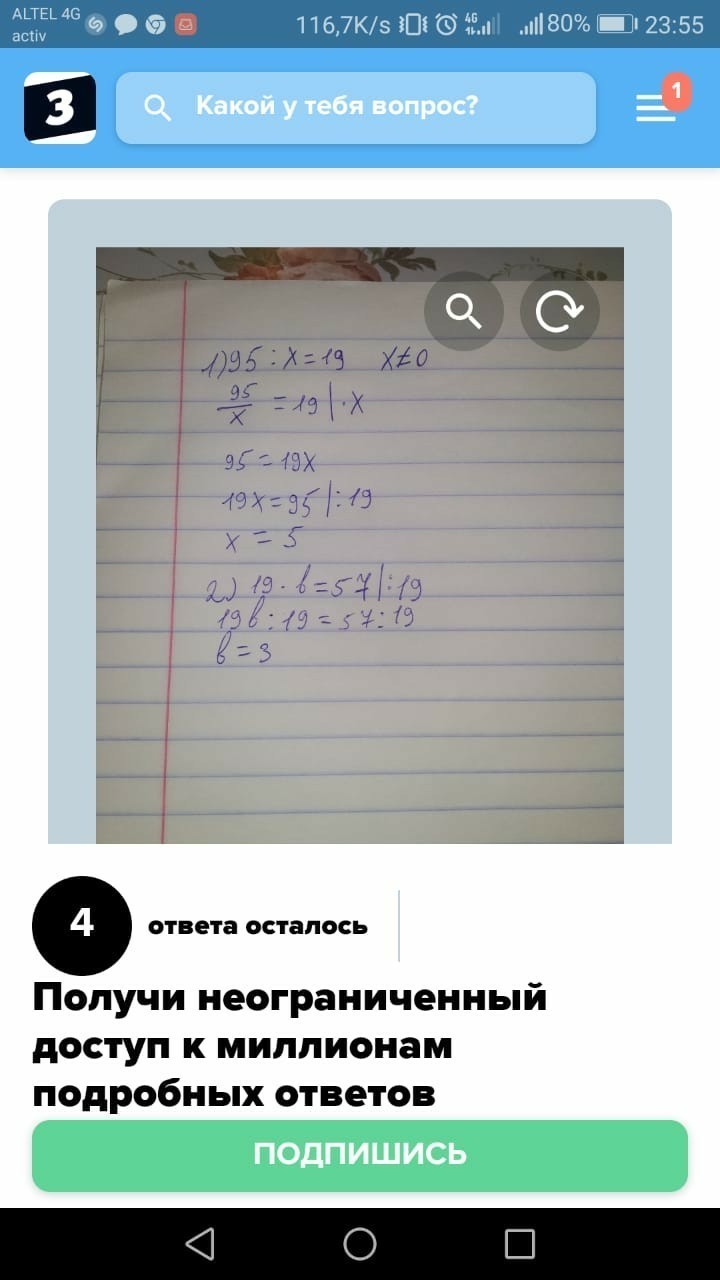 ALTEL 4G
activ
116,7K/s 4G 80% 23:55
З Какой у тебя вопрос? 1
1) 95 : x = 19 x ≠ 0
95/x = 19 | · x
95 = 19x
19x = 95 | : 19
x = 5
2) 19 · b = 57 | : 19
19b : 19 = 57 : 19
b = 3
4 ответа осталось
Получи неограниченный
доступ к миллионам
подробных ответов
ПОДПИШИСЬ